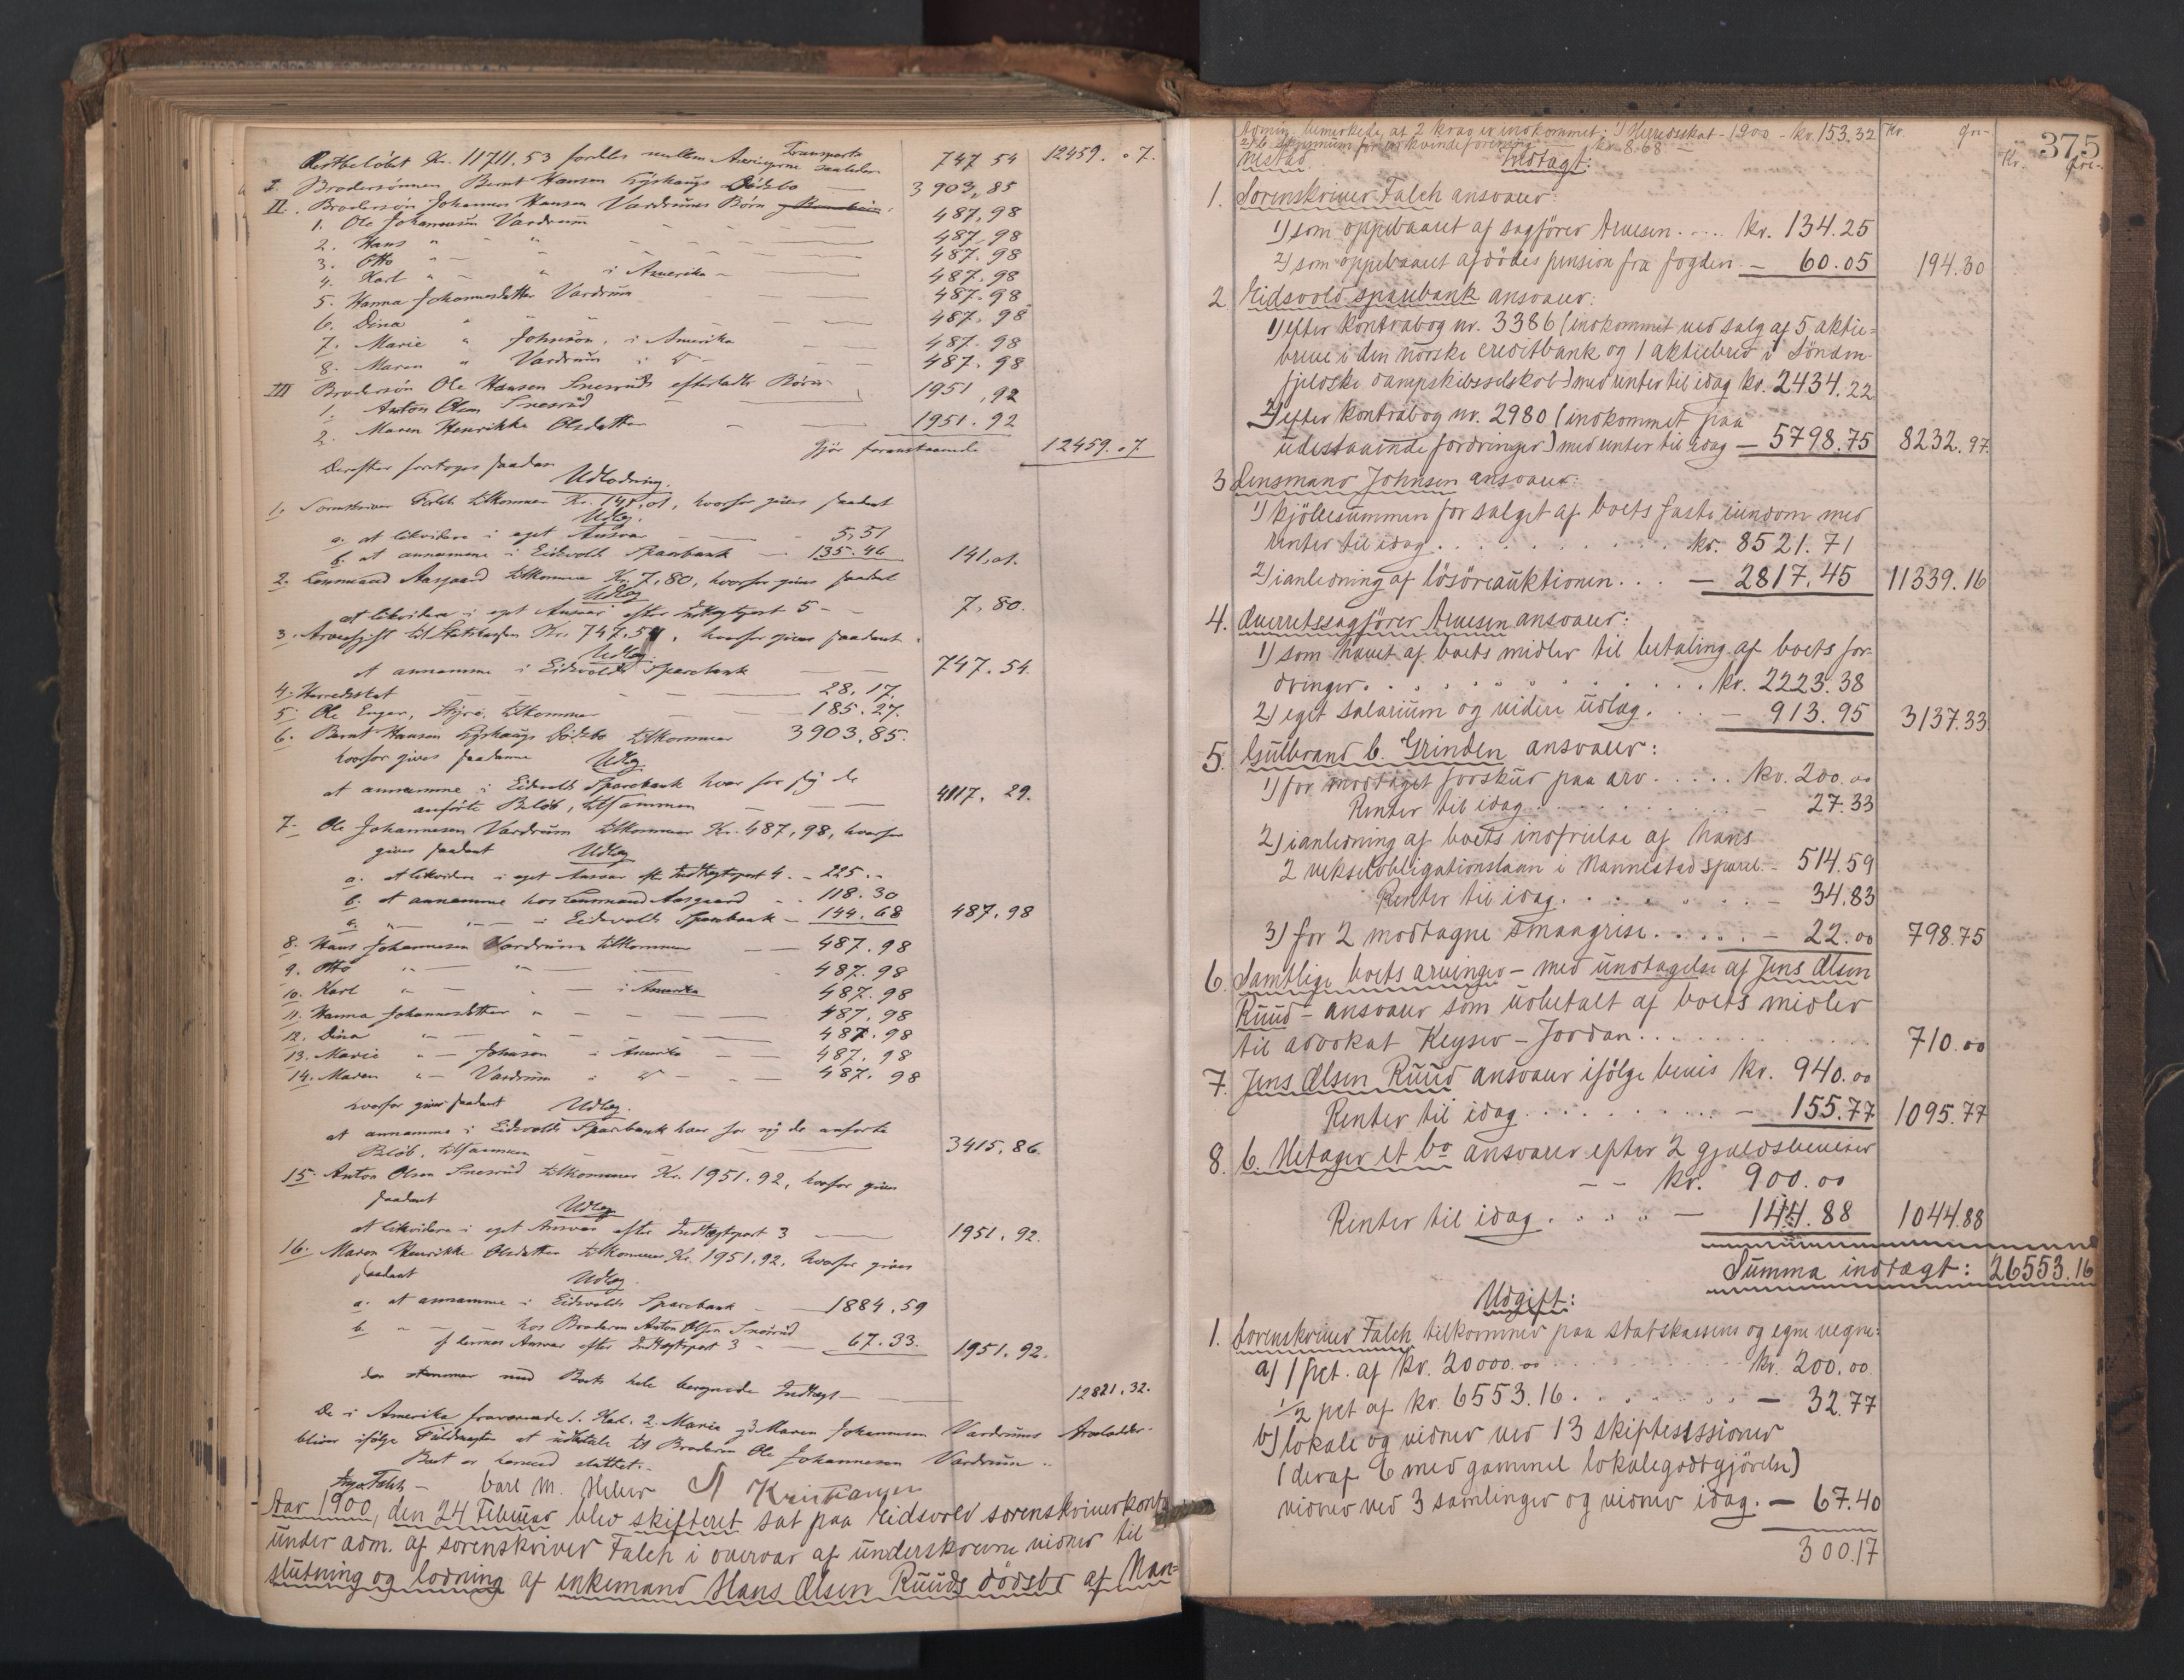 Transporte 747 54 12459.07.
Restbeløbet Kr. 11711,53 fordeles mellem Arvingerne saaledes
I. Brodersønnen Bernt Hansen Lyshaugs Dødsbo — 3903,85
II. Brodersøn Johannes Hansen Vardrums Børn
1. Ole Johannesen Vardrum 487,98
2. Hans " " 487,98
3. Otto " " 487.98
4. Karl " " i Amerika 487.98
5. Hanna Johannesdatter Vardrum 487.98
6. Dina " " 487.98
7. Marie " Johnson, i Amerika 487.98
8. Maren " Vardrum i d° 487,98
III Brodersøn Ole Hansen Snesruds efterladte Børn
1. Anton Olsen Snesrud 1951,92
2. Maren Henrikke Olsdatter 1951.92
Gjør foranstaaende 12459.07
Derefter foretoges saadan
Udlodning.
1. Sorenskriver Falch tilkommer Kr. 141,01, hvorfor gives saadant
Udlæg.
a. at likvidere i eget Ansvar 5,51
b. at annamme i Eidsvolds Sparebank 135.46 141,01.
2. Lensmand Aasgaard tilkommer Kr. 7,80, hvorfor gives saadant
Udlæg
at likvidere i eget Ansvar efter Indtægtspost 5 7,80.
3. Arveafgift til Statskassen Kr. 747.54, hvorfor gives saadant
Udlæg.
at annamme i Eidsvolds Sparebank 747.54.
4. Herredsskat 28.17.
5. Ole Enger, Styri, tilkommer 185.27.
6. Bernt Hansen Lyshaugs Dødsbo tilkommer 3903.85.
hvorfor gives saadanne Udlæg.
at annamme i Eidsvolds Sparebank hver for sig de
anførte Beløb, tilsammen 4117.29.
7. Ole Johannesen Vardrum tilkommer Kr. 487,98, hvorfor
gives saadant Udlæg
a. at likvidere i eget Ansvar eft. Indtægtspost 4. - 225.-
b. at annamme hos Lensmand Aasgaard 118.30
c. " — i Eidsvolds Sparebank 144.68 487.98
8. Hans Johannesen Vardrum tilkommer 487.98
9. Otto " " 487.98
10. Karl " " i Amerika 487.98
11. Hanna Johannesdatter " 487,98
12. Dina " " 487.98
13. Marie " Johnson i Amerika 487.98
14. Maren " Vardrum i d° 487.98
hvorfor gives saadant Udlæg.
at annamme i Eidsvolds Sparebank hver for sig de anførte
Beløb, tilsammen 3415,86.
15. Anton Olsen Snesrud tilkommer Kr. 1951.92, hvorfor gives
saadant Udlæg
at likvidere i eget Ansvar efter Indtægtspost 3 1951.92.
16. Maren Henrikke Olsdatter tilkommer Kr. 1951.92, hvorfor gives
saadant Udlæg.
a. at annamme i Eidsvolds Sparebank 1884.59
b. " — hos Broderen Anton Olsen Snesrud
af hannes Ansvar efter Indtægtspost 3 67.33. 1951.92.
der stemmer med Boets hele beregnede Indtægt 12821.32.
De i Amerika fraværende 1. Karl, 2. Marie og 3. Maren Johannesen Vardrums Arvelodder
bliver ifølge Fuldmagten at udbetale til Broderen Ole Johannesen Vardrum.
Boet er hermed sluttet.
Aage Falch — Carl M. Meler Kristiansen
Aar 1900, den 24 Februar blev skifteret sat paa Eidsvold sorenskriverkontor
under adm. af sorenskriver Falch i overvær af underskrevne vidner til
slutning og lodning af enkemand Hans Olsen Ruuds dødsbo af Nan-
375
Admin. bemerkede, at 2 krav er indkommet: 1) Herredsskat - 1900 - kr. 153.32
kr. 8.68
nestad. Indtægt: Kr. Øre Kr. Øre
1. Sorenskriver Falch ansvarer:
1) som oppebaaret af sagfører Arnesen.... kr. 134.25
2) som oppebaaret afdødes pension fra fogden — 60.05 194.30
2. Eidsvold sparebank ansvarer:
1) efter kontrabog nr. 3386 (indkommet ved salg af 5 aktie-
breve i den norske creditbank og 1 aktiebrev i Sönden-
fjeldske dampskibsselskab) med renter til idag kr. 2434.22
2) efter kontrabog nr. 2980 (indkommet paa
udestaaende fordringer) med renter til idag — 5798.75 8232.97.
3 Lensmand Johnsen ansvarer:
1) kjöbesummen for salget af boets faste eiendom med
renter til idag........ kr. 8521.71
2) i anledning af lösöreauktionen... — 2817.45 11339.16
4. Overretssagfører Arnesen ansvarer:
1) som hævet af boets midler til betaling af boets for-
dringer........ kr. 2223.38
2) eget salarium og videre udlæg. — 913.95 3137.33
5. Gulbrand C. Grinden ansvarer:
1) for modtaget forskud paa arv..... kr. 200.00
Renter til idag........ — 27.33
2) i anledning af boets indfrielse af hans
2 vekselobligationslaan i Nannestad spareb. — 514.59
Renter til idag........ — 34.83
3) for 2 modtagne smaagrise..... — 22.00 798.75
6. Samtlige boets arvinger — med undtagelse af Jens Olsen
Ruud — ansvarer som udbetalt af boets midler
til advokat Keyser-Jordan........ 710.00
7. Jens Olsen Ruud ansvarer ifölge bevis kr. 940.00
Renter til idag........ — 155.77 1095.77
8. C. Metager et Co ansvarer efter 2 gjeldsbeviser
— — kr. 900.00
Renter til idag..... — 144.88 1044.88
Summa indtægt: 26553.16
Udgift:
1. Sorenskriver Falch tilkommer paa statskassens og egne vegne:
a) 1 pct. af kr. 20000.00........ kr. 200.00
1/2 pct af kr. 6553.16........ — 32.77
b) lokale og vidner ved 13 skiftesessioner
(deraf 6 med gammel lokalegodtgjörelse)
vidner ved 3 samlinger og vidner idag. — 67.40
300.17